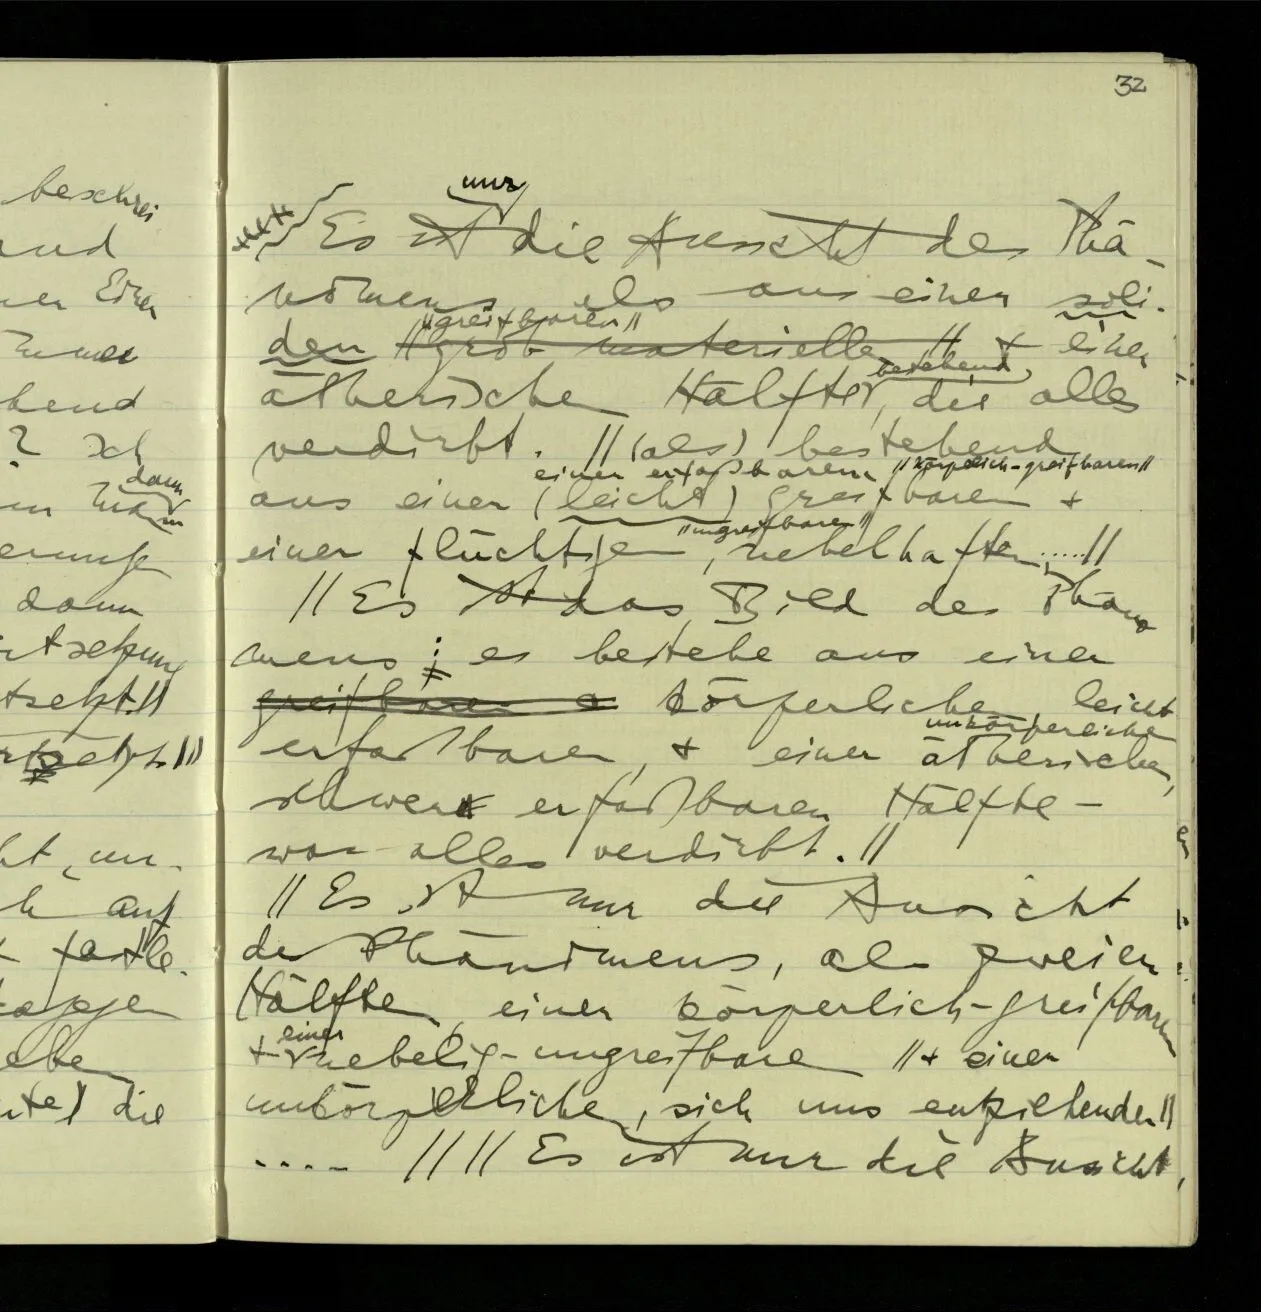 beschrei
und
Einen
immer
hend
? Ich
dann
dann
rtsetzung
tsetzt.//
etzt.///
ht, un-
h auf
faste.
die
32
nur
Es ist die Ansicht des Phä-
nomens als aus einer soli-
"greifbaren"
den // grob materiellen // + einer
bestehend
ätherischen Hälfte, die alles
verdirbt. // (als) bestehend
einer erfaßbaren // körperlich-greifbaren //
aus einer (leicht) greifbaren +
"ungreifbaren"
einer flüchtigen, nebelhaften, ..... //
// Es ist das Bild des Phäno
mens ; es bestehe aus einer
greifbaren körperlichen, leicht
unkörperlichen
erfaßbaren, + einer ätherischen,
schwer erfaßbaren Hälfte –
was alles verdirbt. //
// Es ist nur die Ansicht
des Phänomens, als zweier
Hälften, einer körperlich-greifbaren
einer
+ nebelig-ungreifbaren // + einer
unkörperlichen, sich uns entziehenden //
.... //// Es ist nur die Ansicht,